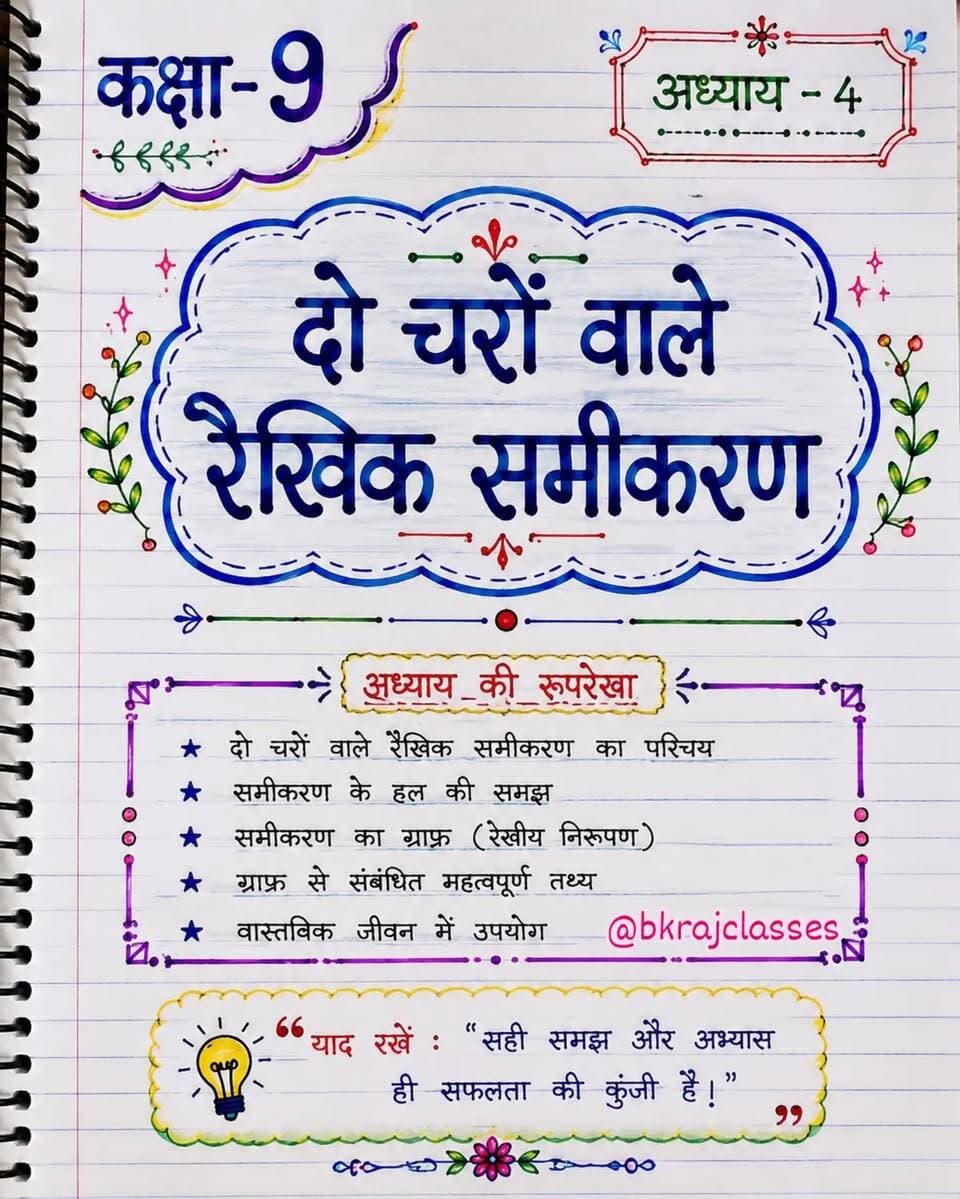 कक्षा-9
अध्याय - 4
दो चरों वाले
रैखिक समीकरण
अध्याय की रूपरेखा
★ दो चरों वाले रैखिक समीकरण का परिचय
★ समीकरण के हल की समझ
★ समीकरण का ग्राफ़ (रेखीय निरूपण)
★ ग्राफ़ से संबंधित महत्वपूर्ण तथ्य
★ वास्तविक जीवन में उपयोग
@bkrajclasses
“ याद रखें : “ सही समझ और अभ्यास
ही सफलता की कुंजी है! ”
”